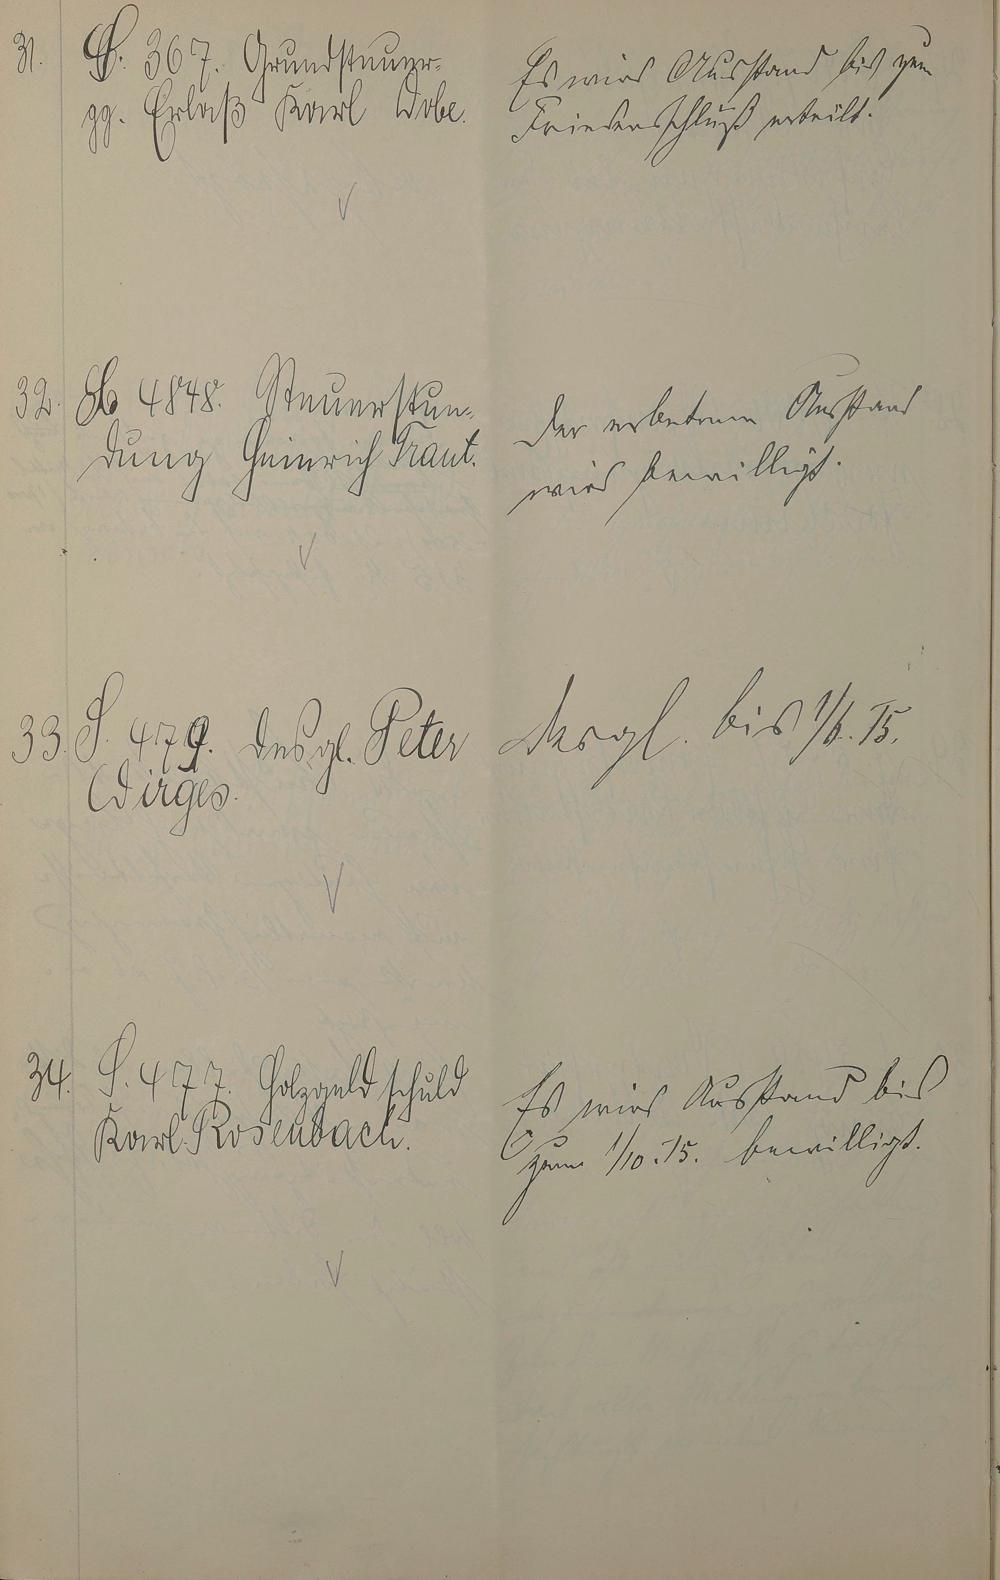 31.
S. 367. Grundsteuer-
gg. Erlaß Karl Dobe.
Es wird Ausstand bis zum
Friedensschluß erteilt.
32.
4848. Steuerstun-
dung Heinrich Traut.
Der erbetenen Ausstand
wird bewilligt.
33.
S. 479. desgl. Peter
Dirges.
desgl. bis 1/6. 15.
34.
S. 477. Holzgeldschuld
Karl Rosenbach.
Es wird Ausstand bis
zum 1/10. 15. bewilligt.